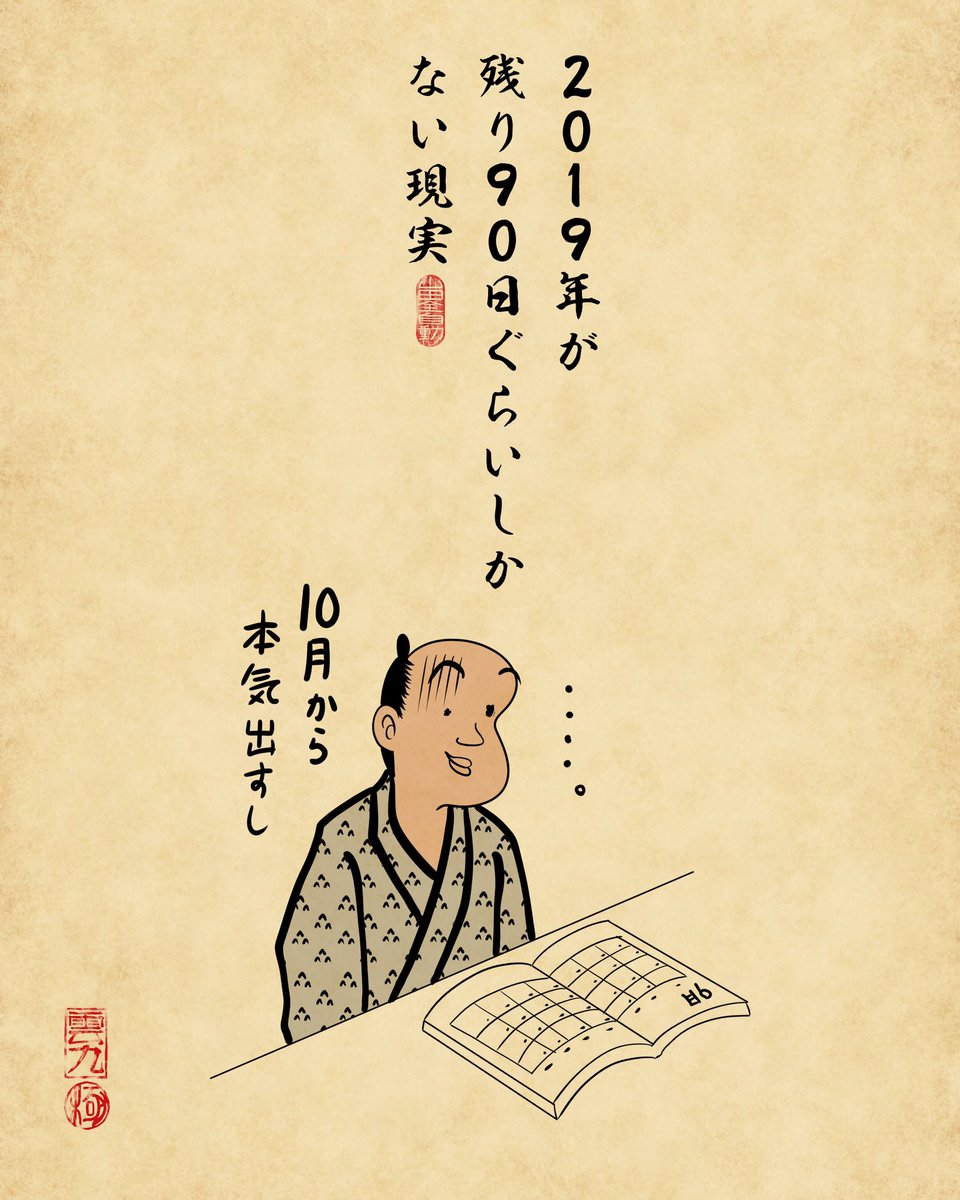 2019年が
残り90日ぐらいしか
ない現実
‥‥。
10月から
本気出すし
9月